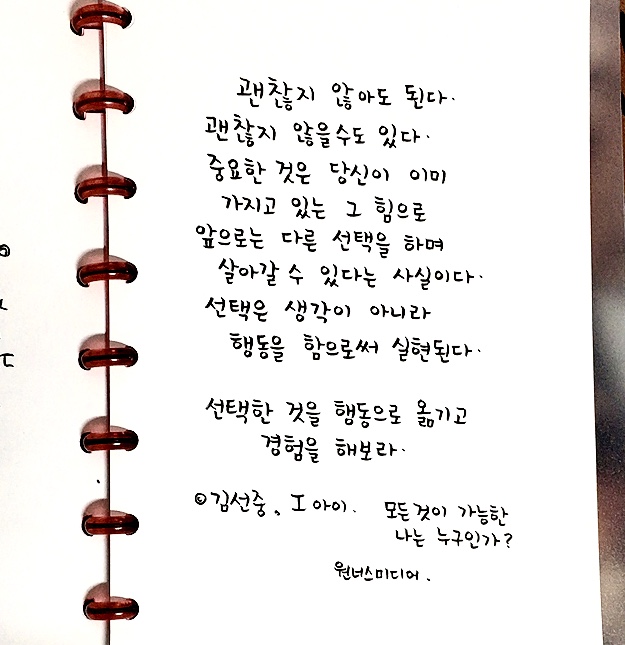 괜찮지 않아도 된다.
괜찮지 않을수도 있다.
중요한 것은 당신이 이미
가지고 있는 그 힘으로
앞으로는 다른 선택을 하며
살아갈 수 있다는 사실이다.
선택은 생각이 아니라
행동을 함으로써 실현된다.
선택한 것을 행동으로 옮기고
경험을 해보라.
©김선중, I 아이. 모든것이 가능한
나는 누구인가?
원너스미디어.